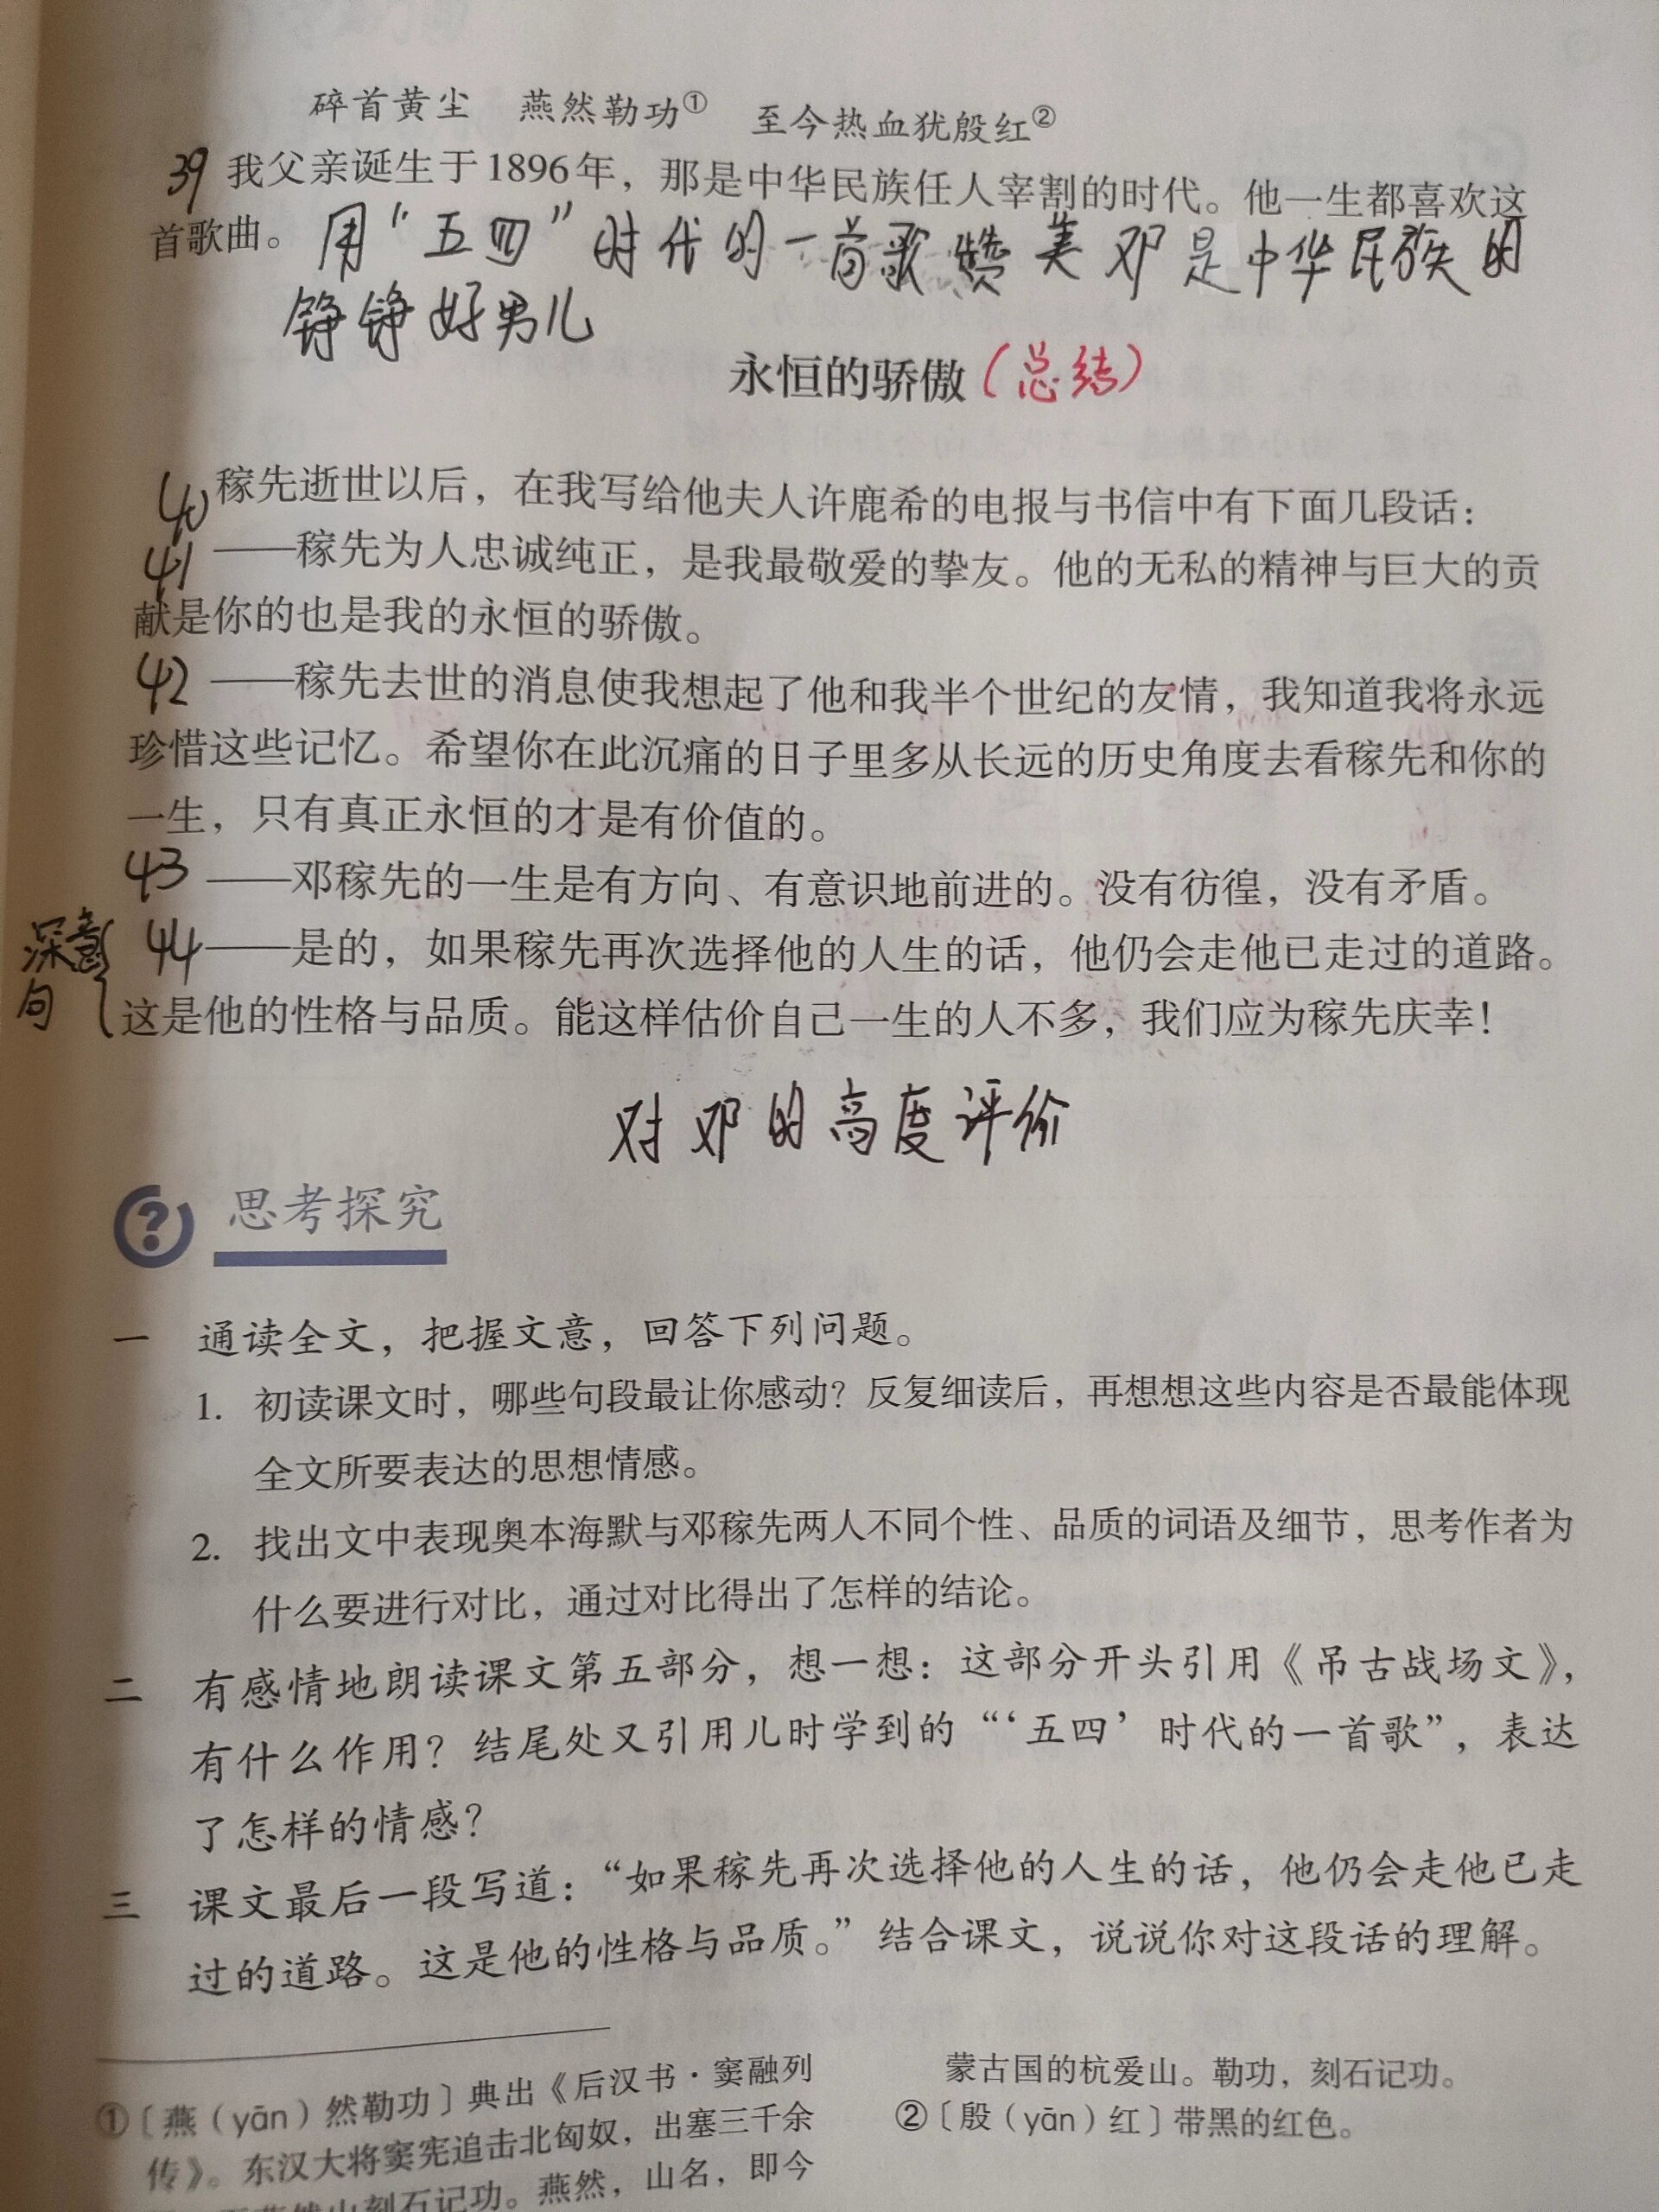 碎首黄尘 燕然勒功① 至今热血犹殷红②
39 我父亲诞生于1896年，那是中华民族任人宰割的时代。他一生都喜欢这
首歌曲。 用“五四”时代的一首歌赞美邓是中华民族的
铮铮好男儿
永恒的骄傲（总结）
40 稼先逝世以后，在我写给他夫人许鹿希的电报与书信中有下面几段话：
41 ——稼先为人忠诚纯正，是我最敬爱的挚友。他的无私的精神与巨大的贡
献是你的也是我的永恒的骄傲。
42 ——稼先去世的消息使我想起了他和我半个世纪的友情，我知道我将永远
珍惜这些记忆。希望你在此沉痛的日子里多从长远的历史角度去看稼先和你的
一生，只有真正永恒的才是有价值的。
43 ——邓稼先的一生是有方向、有意识地前进的。没有彷徨，没有矛盾。
深意句
44 ——是的，如果稼先再次选择他的人生的话，他仍会走他已走过的道路。
这是他的性格与品质。能这样估价自己一生的人不多，我们应为稼先庆幸！
对邓的高度评价
思考探究
一 通读全文，把握文意，回答下列问题。
1. 初读课文时，哪些句段最让你感动？反复细读后，再想想这些内容是否最能体现
全文所要表达的思想情感。
2. 找出文中表现奥本海默与邓稼先两人不同个性、品质的词语及细节，思考作者为
什么要进行对比，通过对比得出了怎样的结论。
二 有感情地朗读课文第五部分，想一想：这部分开头引用《吊古战场文》，
有什么作用？结尾处又引用儿时学到的“‘五四’时代的一首歌”，表达
了怎样的情感？
三 课文最后一段写道：“如果稼先再次选择他的人生的话，他仍会走他已走
过的道路。这是他的性格与品质。”结合课文，说说你对这段话的理解。
①〔燕（yān）然勒功〕典出《后汉书·窦融列
传》。东汉大将窦宪追击北匈奴，出塞三千余
刻石记功。燕然，山名，即今
蒙古国的杭爱山。勒功，刻石记功。
②〔殷（yān）红〕带黑的红色。